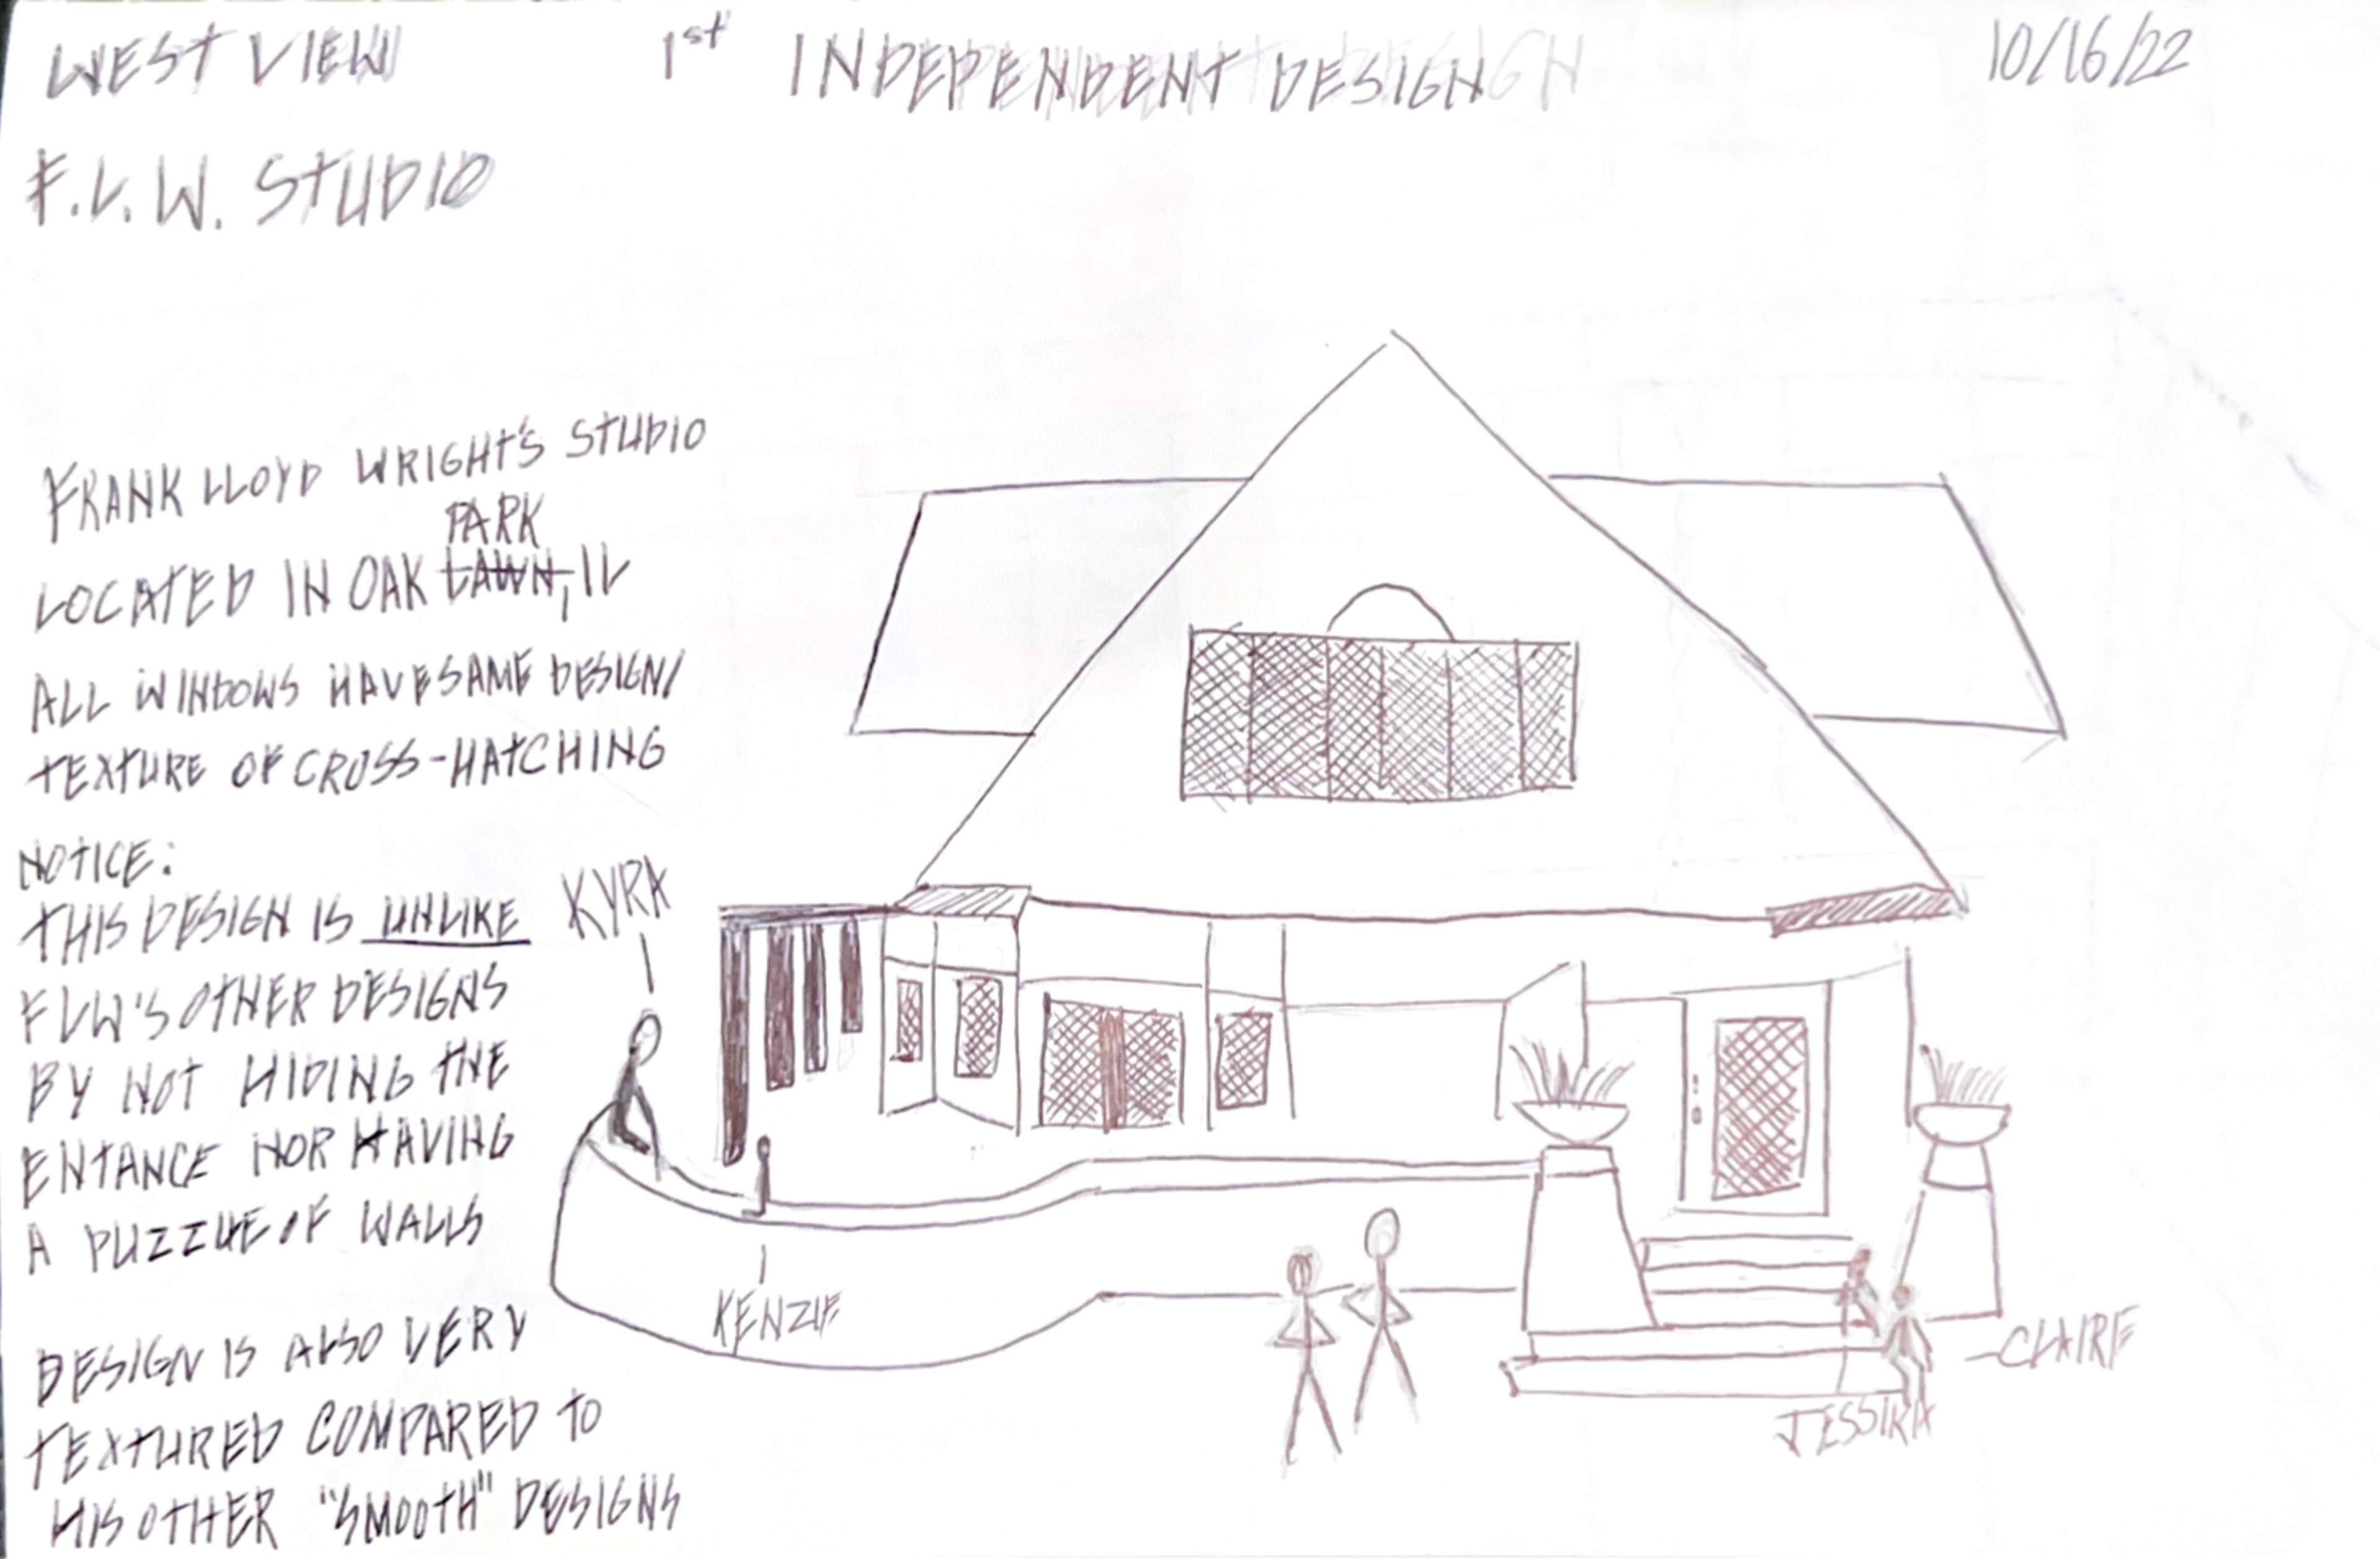 WEST VIEW
1st INDEPENDENT DESIGN
10/16/22
F.L.W. STUDIO
FRANK LLOYD WRIGHT'S STUDIO
PARK
LOCATED IN OAK LAWN, IL
ALL WINDOWS HAVE SAME DESIGN/
TEXTURE OF CROSS-HATCHING
NOTICE:
THIS DESIGN IS UNLIKE
FLW'S OTHER DESIGNS
BY NOT HIDING THE
ENTANCE NOR HAVING
A PUZZLE OF WALLS
DESIGN IS ALSO VERY
TEXTURED COMPARED TO
HIS OTHER "SMOOTH" DESIGNS
KYRA
KENZIE
CLAIRE
JESSIKA